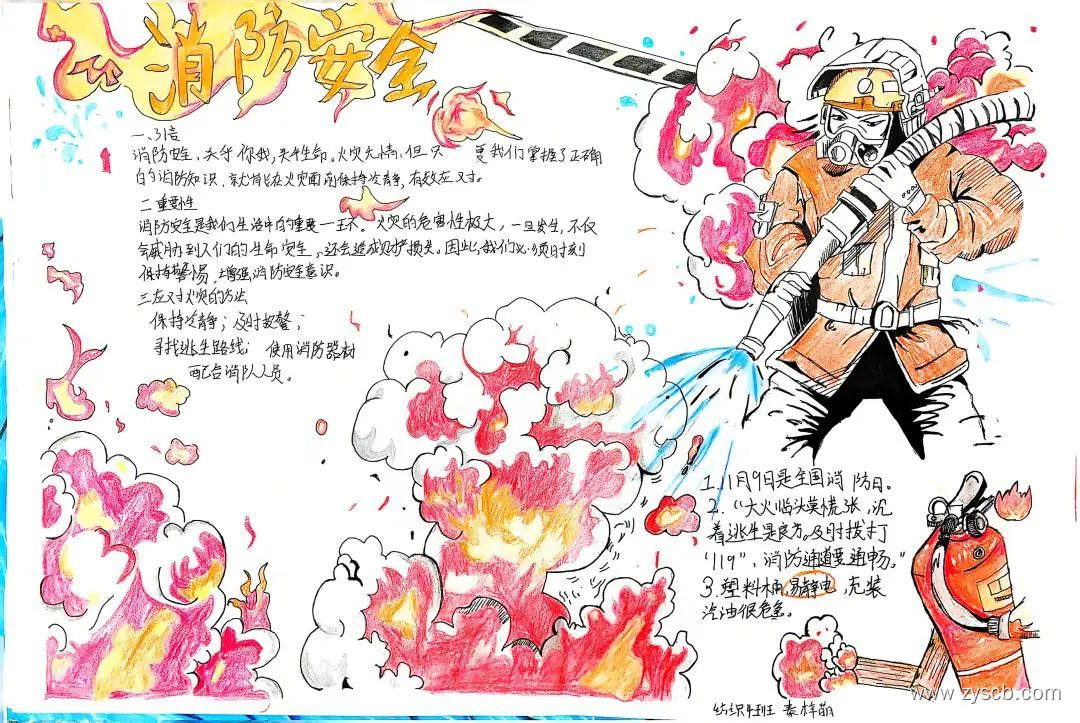 消防安全
一、引言
消防安全,关乎你我,关乎生命。火灾无情,但只要我们掌握了正确
的消防知识,就能在火灾面前保持冷静,有效应对。
二 重要性
消防安全是我们生活中的重要一环。火灾的危害性极大,一旦发生,不仅
会威胁到人们的生命安全,还会造成财产损失。因此,我们必须时刻
保持警惕,增强消防安全意识。
三应对火灾的方法
保持冷静;及时报警;
寻找逃生路线;使用消防器材
配合消队人员。
1.11月9日是全国消防日。
2."大火临头莫慌张,沉
着逃生是良方。及时拨打
"119",消防通道要通畅。"
3.塑料桶易静电,充装
汽油很危急。
班 袁梓萌
www.zyscb.com